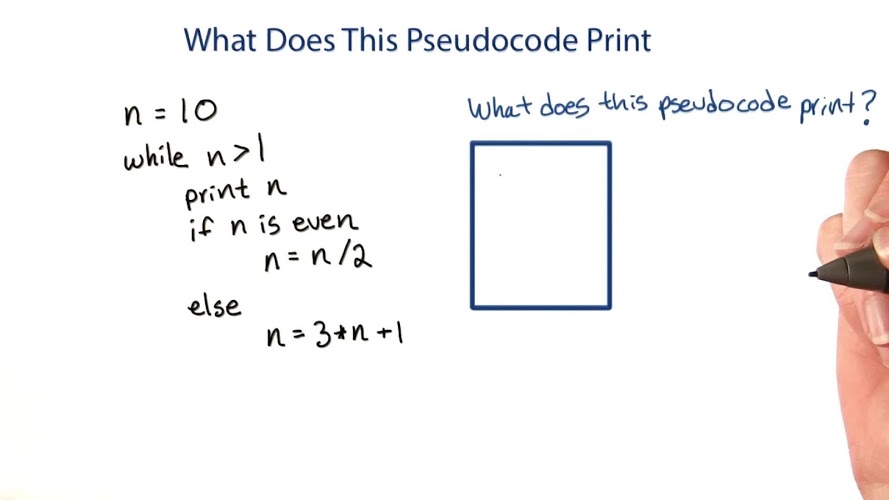 What Does This Pseudocode Print
n = 10
while n > 1
print n
if n is even
n = n/2
else
n = 3*n+1
What does this pseudocode print?